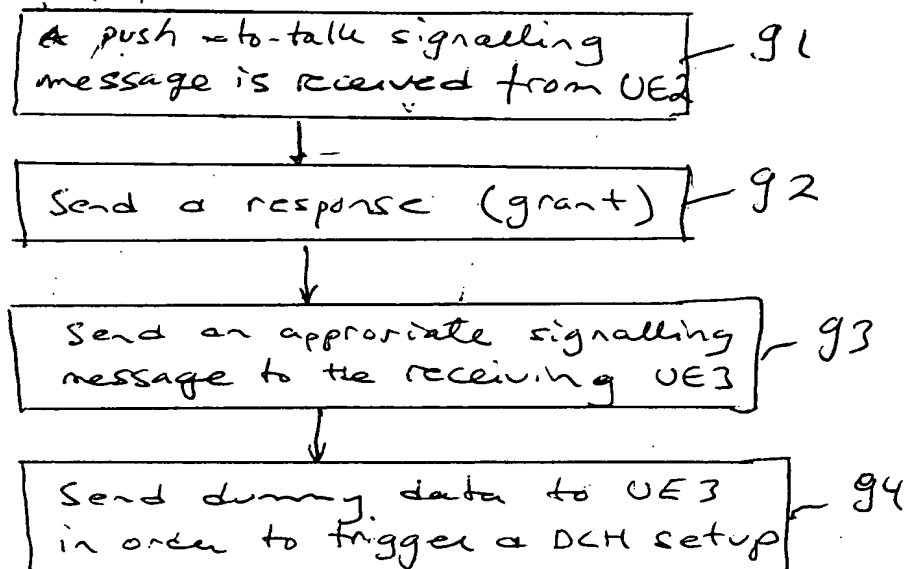 A push-to-talk signalling 91
message is received from UE2
Send a response (grant) 92
Send an approriate signalling
message to the receiving UE3 93
Send dummy data to UE3 94
in order to trigger a DCH setup